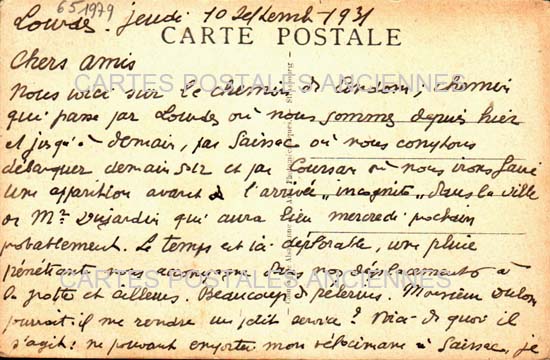 651979
Lourdes. jeudi 10 septembre 1931
CARTE POSTALE
Chers amis
CARTES POSTALES ANCIENNES
Nous voici sur le chemin de Condom; chemin
qui passe par Lourdes où nous sommes depuis hier
et jusqu'à demain, par Saissac où nous comptons
débarquer demain soir et par Coursan où nous irons faire
une apparition avant l'arrivée "incognito" dans la ville
de Mr Dujardin qui aura lieu mercredi prochain
probablement. Le temps est ici déplorable, une pluie
pénétrante nous accompagne dans nos déplacements à
CARTES POSTALES ANCIENNES
la grotte et ailleurs. Beaucoup de pèlerins. Monsieur
pourrait-il me rendre un petit service? Voici de quoi il
s'agit: ne pouvant emporter mon vélocimane à Saissac, je